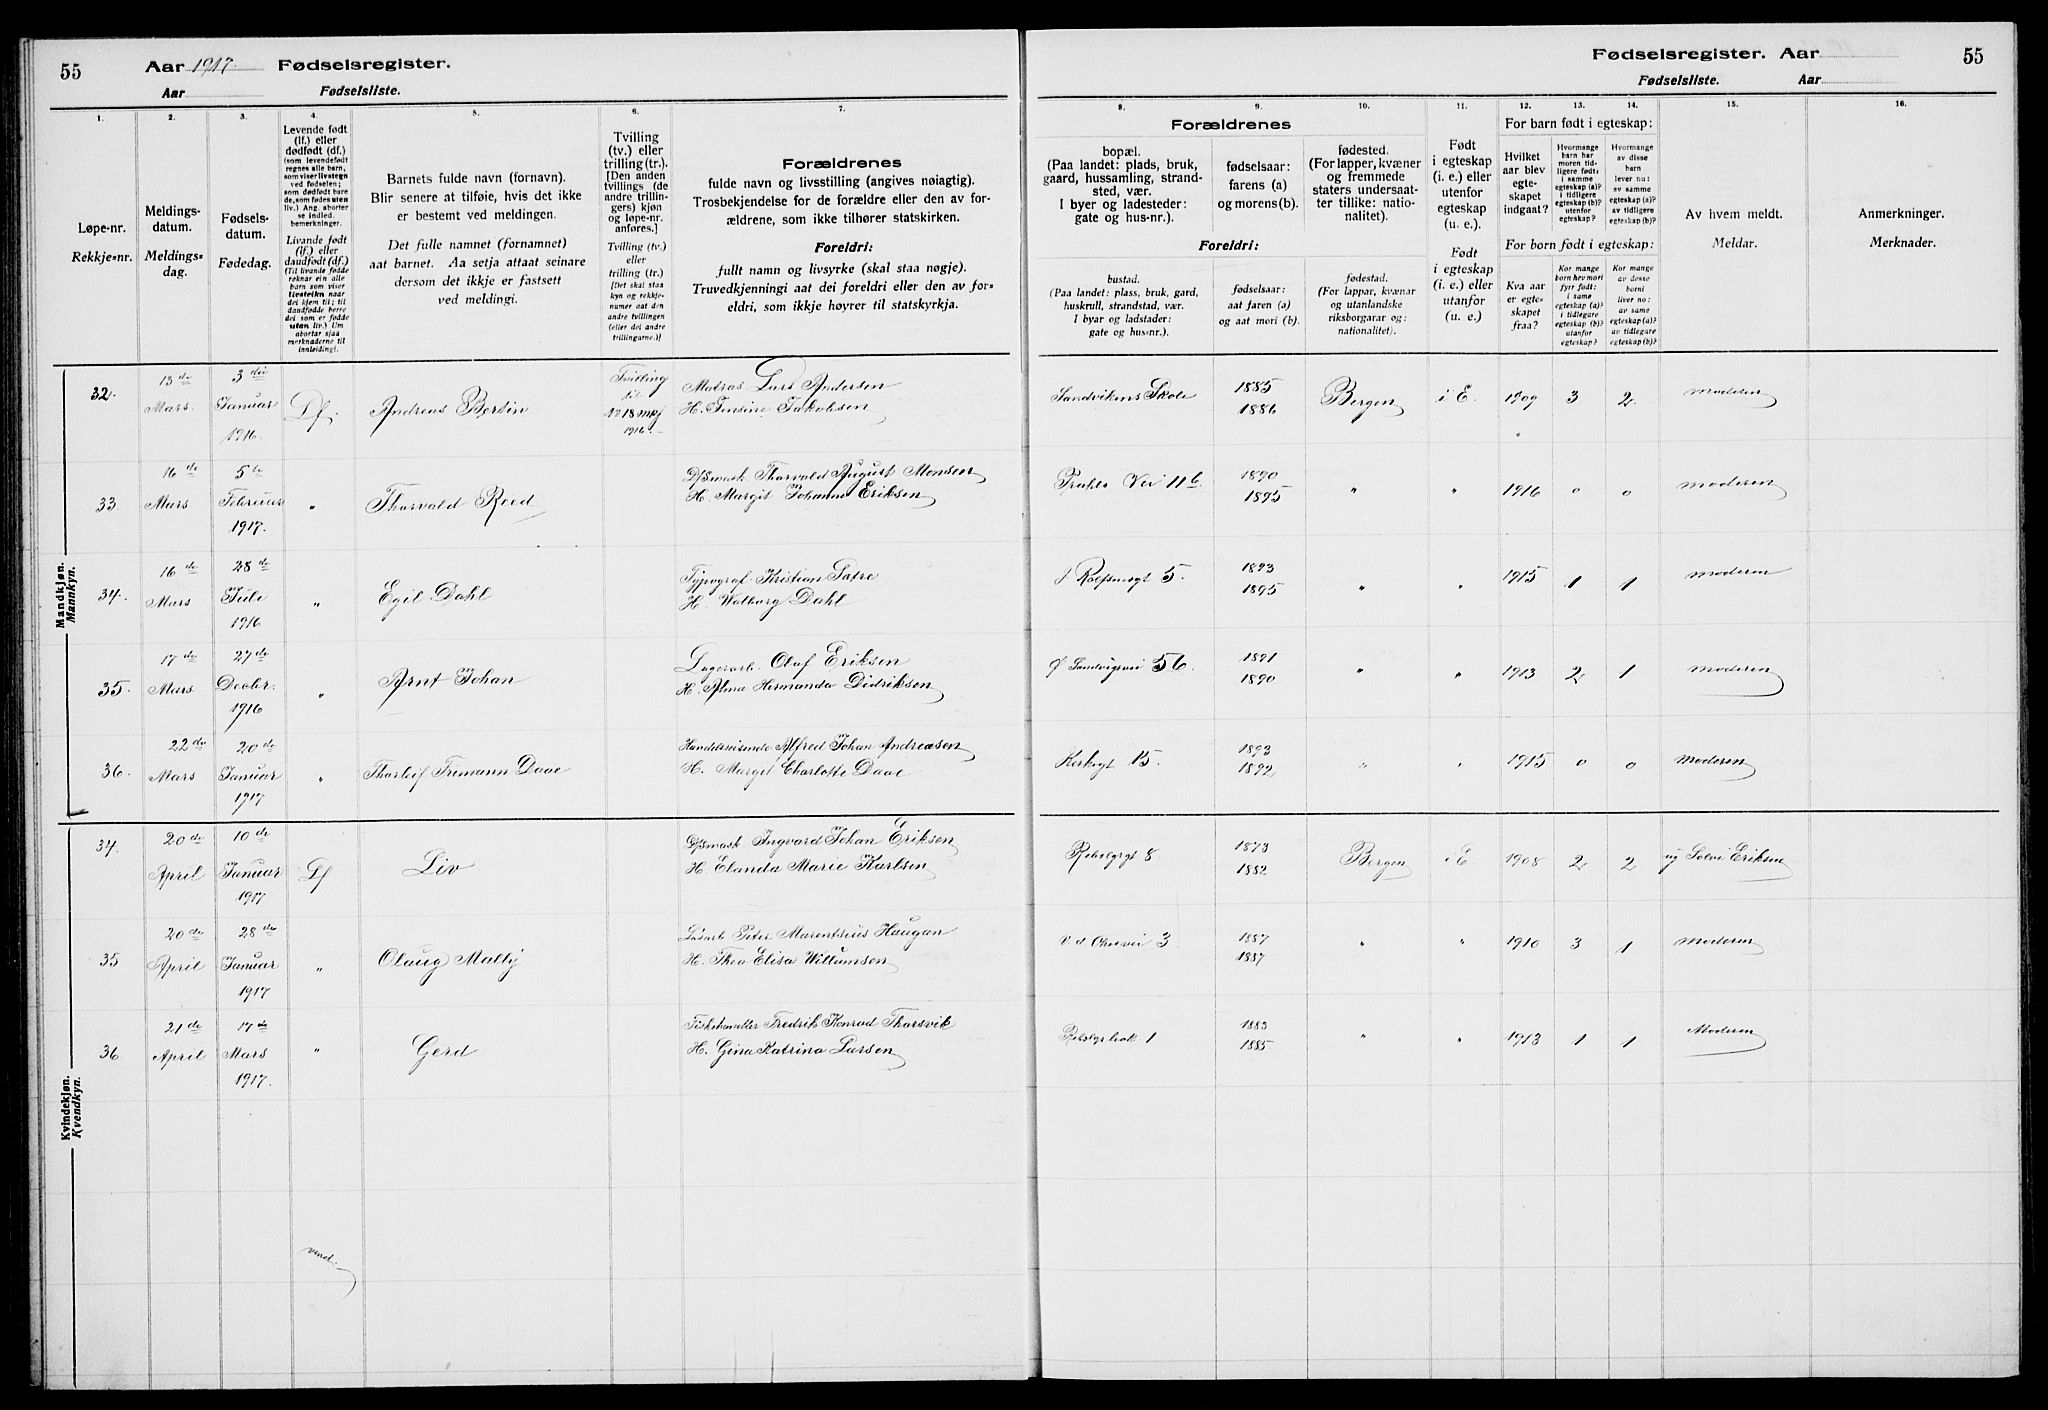 55
Aar 1917. Fødselsregister.
Aar Fødselsliste.
1.
Løpe-nr.
Rekkje-nr.
2.
Meldings-
datum.
Meldings-
dag.
3.
Fødsels-
datum.
Fødedag.
4.
Levende født
(lf.) eller
dødfødt (df.)
(som levendefødt
regnes alle barn,
som viser livstegn
ved fødselen;
som dødfødt bare
de, som fødes uten
liv.) Ang. aborter
se indled.
bemerkninger.
Livande født
(lf.) eller
daudfødt (df.)
(Til livande fødde
reknar ein alle
born som viser
livsteikn naar
dei kjem til; til
daudfødde berre
dei som er fødde
utan liv.) Um
abortar sjaa
merknaderne til
innleidingi.
5.
Barnets fulde navn (fornavn).
Blir senere at tilføie, hvis det ikke
er bestemt ved meldingen.
Det fulle namnet (fornamnet)
aat barnet. Aa setja attaat seinare
dersom det ikkje er fastsett
ved meldingi.
6.
Tvilling
(tv.) eller
trilling (tr.).
[Den anden
tvillings (de
andre trillin-
gers) kjøn
og løpe-nr.
anføres.]
Tvilling (tv.)
eller
trilling (tr.)
[Det skal staa
kyn og rekkje-
numer aat den
andre tvillingen
(eller dei andre
trillingarne.)]
7.
Forældrenes
fulde navn og livsstilling (angives nøiagtig).
Trosbekjendelse for de forældre eller den av for-
ældrene, som ikke tilhører statskirken.
Foreldri:
fullt namn og livsyrke (skal staa nøgje).
Truvedkjenningi aat dei foreldri eller den av for-
eldri, som ikkje høyrer til statskyrkja.
Mandkjøn.
Mannkyn.
32.
13de
Mars
3die
Januar
1916.
Df.
Andreas Bertin
Tvilling
til
No 18 mkj
1916.
Matros Lars Andersen
H. Jensine Jakobsen
33.
16de
Mars
5te
Februar
1917.
"
Thorvald Reed
D/Smask Thorvald August Monsen
H. Margit Johanne Eriksen
34.
16de
Mars
28de
Juli
1916
"
Egil Dahl
Typograf Kristian Satre
H. Walborg Dahl
35.
17de
Mars.
27de
Decbr.
1916
"
Arnt Johan
Lagerarb. Olaf Eriksen
H. Alma Hermanda Didriksen
36.
22de
Mars
20de
Januar
1917
"
Thorleif Frimann Daae
Handelsreisende Alfred Johan Andreasen
H. Margit Charlotte Daae
Kvindekjøn.
Kvendkyn.
34.
20de
April
10de
Januar
1917
Df
Liv
D/Smask Ingvard Johan Eriksen
H. Elanda Marie Karlsen
35
20de
April
28de
Januar
1917
"
Olaug Mally
Peter Marentsius Haugan
H. Thea Elisa Willumsen
36.
21de
April
17de
Mars
1917.
"
Gerd
Fiskehandler Fredrik Konrad Thorsvik
H. Gina Katrina Larsen
vend.
Fødselsregister. Aar 55
Fødselsliste. Aar
Forældrenes
8.
bopæl.
(Paa landet: plads, bruk,
gaard, hussamling, strand-
sted, vær.
I byer og ladesteder:
gate og hus-nr.).
9.
fødselsaar:
farens (a)
og morens (b).
10.
fødested.
(For lapper, kvæner
og fremmede
staters undersaat-
ter tillike: natio-
nalitet).
Foreldri:
bustad.
(Paa landet: plass, bruk, gard,
huskrull, strandstad, vær.
I byar og ladstader:
gate og hus-nr.).
fødselsaar:
aat faren (a)
og aat mori (b).
fødestad.
(For lappar, kvænar
og utanlandske
riksborgarar og:
nationalitet).
11.
Født
i egteskap
(i. e.) eller
utenfor
egteskap
(u. e.).
Født
i egteskap
(i. e.) eller
utanfor
(u. e.).
For barn født i egteskap:
12.
Hvilket
aar blev
egte-
skapet
indgaat?
13.
Hvormange
barn har
moren tid-
ligere født:
i samme
egteskap (a)?
i tidligere
egteskap (b)?
utenfor
egteskap?
14.
Hvormange
av disse
barn
lever nu:
av samme
egteskap (a)?
av tidligere
egteskap (b)?
For born født i egteskap:
Kva aar
er egte-
skapet
fraa?
Kor mange
born hev mori
fyrr født:
i same
egteskap (a)?
i tidlegare
egteskap (b)?
utanfor
egteskap?
Kor mange
av desse
borni
liver no:
av same
egteskap (a)?
av tidlegare
egteskap (b)?
15.
Av hvem meldt.
Meldar.
16.
Anmerkninger.
Merknader.
Sandvikens Skole
1885
1886
Bergen
i E.
1909
3
2
moderen
Prahls Vei 11b
1890
1895
"
"
1916
0
0
moderen
5.
1893
1895
"
"
1915
1
1
moderen
Ø Sandvigsvei 56
1891
1890
"
"
1913
2
1
moderen
Kirkegt 15.
1893
1892
"
"
1915
0
0
moderen
8
1873
1882
Bergen
i E
1908
2
2
Eriksen
3
1887
1887
"
"
1910
3
1
moderen
1
1883
1885.
"
"
1913
1
1
Moderen